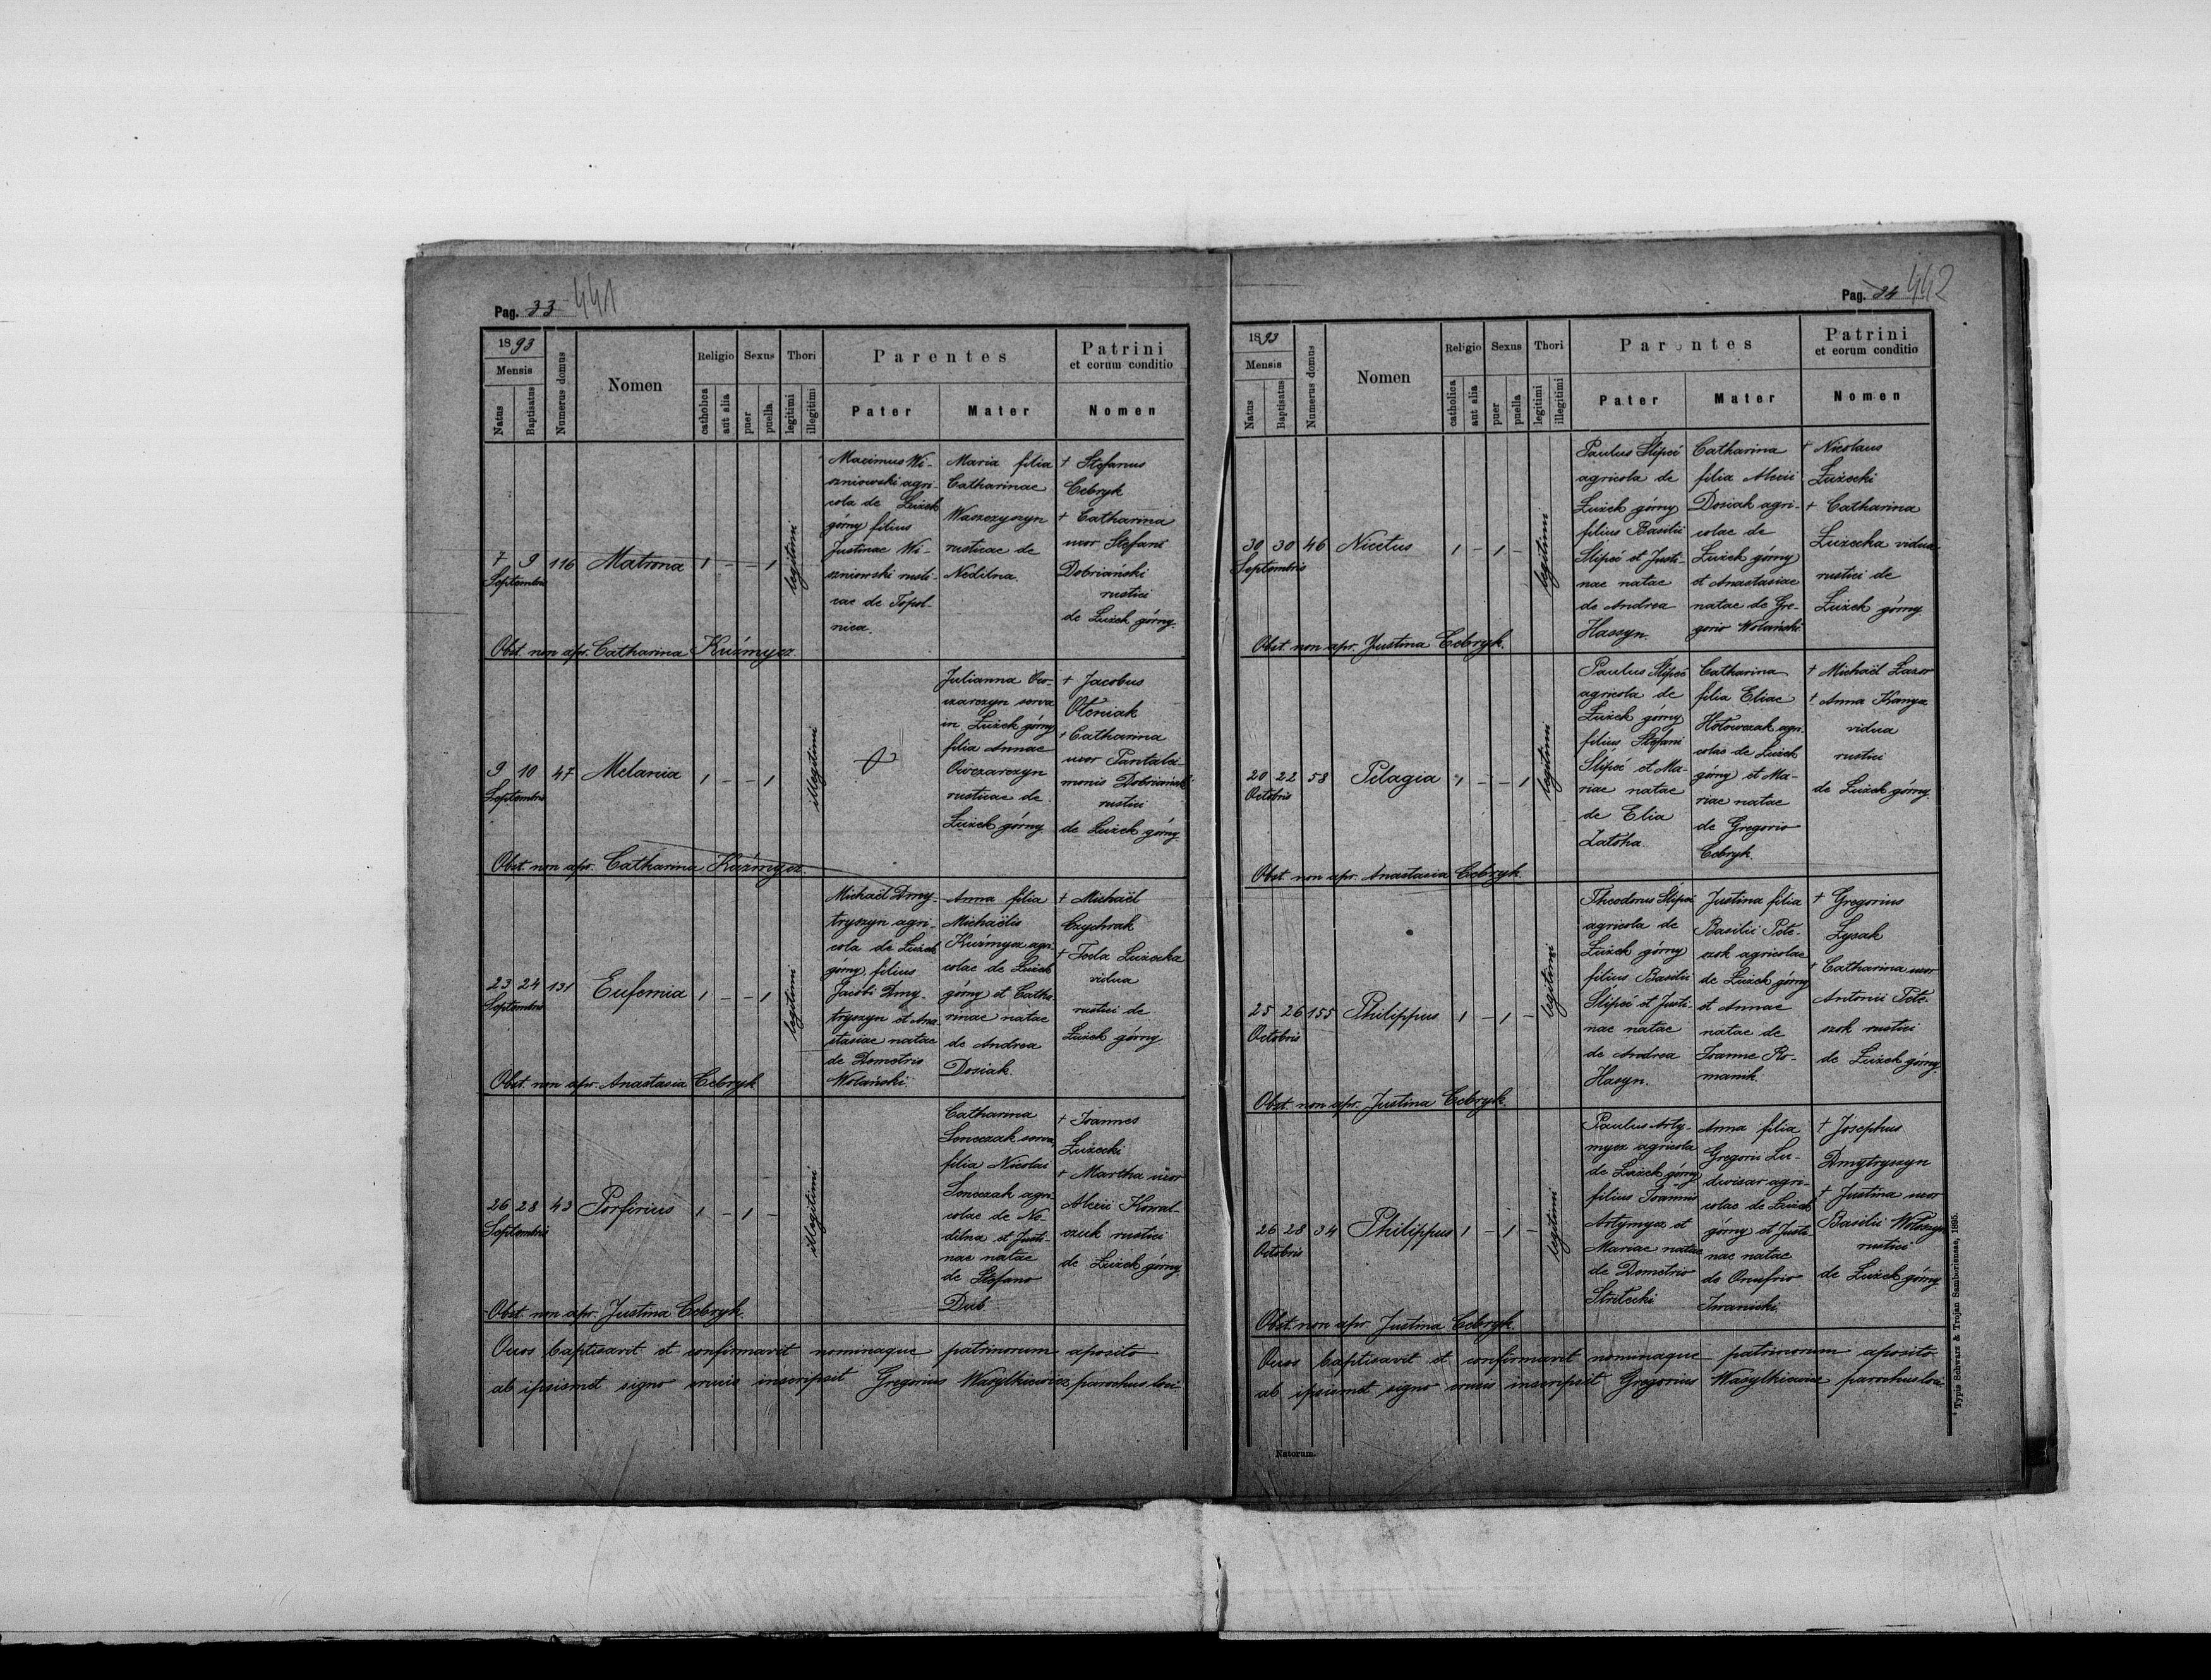 Pag. 33 441
1893
Mensis
Natus
Baptisatus
Numerus domus
Nomen
Religio
catholica
aut alia
Sexus
puer
puella
Thori
legitimi
illegitimi
Parentes
Pater
Mater
Patrini
et eorum conditio
Nomen
7 9 116 Matrona 1 - - 1 legitimi
Septembris
Maximus Wi-
szniowski agri-
cola de Łużek
górny filius
Justinae Wi-
szniowski rusti-
cae de Topol-
nica.
Maria filia
Catharinae
Waszczyszyn
rusticae de
Nedilna.
† Stefanus
Cebryk
† Catharina
uxor Stefani
Dobriański
rustici
de Łużek górny.
Obst. non apr. Catharina Kuźmycz.
9 10 47 Melania 1 - - 1 illegitimi
Septembris
Julianna Ow-
czarczyn serva
in Łużek górny
filia Annae
Owczarczyn
rusticae de
Łużek górny.
† Jacobus
Oteniak
† Catharina
uxor Pantalei-
monis Dobriański
rustici
de Łużek górny.
Obst. non apr. Catharina Kuźmycz.
23 24 131 Eufemia 1 - - 1 legitimi
Septembris
Michaël Dmy-
tryszyn agri-
cola de Łużek
górny, filius
Jacobi Dmy-
tryszyn et Ana-
stasiae natae
de Demetrio
Wolański.
Anna filia
Michaëlis
Kuźmycz agri-
colae de Łużek
górny et Catha-
rinae natae
de Andrea
Dosiak.
† Michaël
Czychrak
† Tecla Łużecka
vidua
rustici de
Łużek górny
Obst. non apr. Anastasia Cebryk
26 28 43 Porfirius 1 - 1 - illegitimi
Septembris
Catharina
Soneczak serva,
filia Nicolai
Soneczak agri-
colae de Ne-
dilna et Justi-
nae natae
de Stefano
Dub.
† Joannes
Łużecki
† Martha uxor
Alexii Kowal-
czuk rustici
de Łużek górny.
Obst. non apr. Justina Cebryk.
Quos baptisavit et confirmavit nominaque patrinorum aposito
ab ipsismet signo crucis inscripsit Gregorius Wasylkiewicz parochus loci
Pag. 34 442
1893
Mensis
Natus
Baptisatus
Numerus domus
Nomen
Religio
catholica
aut alia
Sexus
puer
puella
Thori
legitimi
illegitimi
Parentes
Pater
Mater
Patrini
et eorum conditio
Nomen
30 30 46 Nicetus 1 - 1 - legitimi
Septembris
Paulus Slipeć
agricola de
Łużek górny
filius Basilii
Slipeć et Justi-
nae natae
de Andrea
Haszyn.
Catharina
filia Alexii
Dosiak agri-
colae de
Łużek górny
et Anastasiae
natae de Gre-
gorio Wolański
† Nicolaus
Łużecki
† Catharina
Łużecka vidua
rustici de
Łużek górny.
Obst. non apr. Justina Cebryk.
20 22 58 Pelagia 1 - - 1 legitimi
Octobris
Paulus Slipeć
agricola de
Łużek górny
filius Stefani
Slipeć et Ma-
riae natae
de Elia
Łatoha
Catharina
filia Eliae
Hołowczak agri-
colae de Łużek
górny et Ma-
riae natae
de Gregorio
Cebryk.
† Michaël Łazor
† Anna Kanya
vidua
rustici
de Łużek górny.
Obst. non apr. Anastasia Cebryk.
25 26 155 Philippus 1 - 1 - legitimi
Octobris
Theodorus Slipeć
agricola de
Łużek górny
filius Basilii
Slipeć et Justi-
nae natae
de Andrea
Haszyn.
Justina filia
Basilii Pote-
szok agricolae
de Łużek górny
et Annae
natae de
Joanne Ro-
manik.
† Gregorius
Łysak
† Catharina uxor
Antonii Pote-
szok rustici
de Łużek górny.
Obst. non apr. Justina Cebryk.
26 28 34 Philippus 1 - 1 - legitimi
Octobris
Paulus Arty-
mycz agricola
de Łużek górny
filius Joannis
Artymycz et
Mariae natae
de Demetrio
Strilecki
Anna filia
Gregorii Lu-
dwisar agri-
colae de Łużek
górny et Justi-
nae natae
de Onufrio
Iwanicki
† Josephus
Dmytryszyn
† Justina uxor
Basilii Wołoszyn
rustici
de Łużek górny.
Obst. non apr. Justina Cebryk.
Quos baptisavit et confirmavit nominaque patrinorum aposito
ab ipsismet signo crucis inscripsit Gregorius Wasylkiewicz parochus loci
Natorum.
Typis Schwarz & Trojan Samboriensae, 1895.